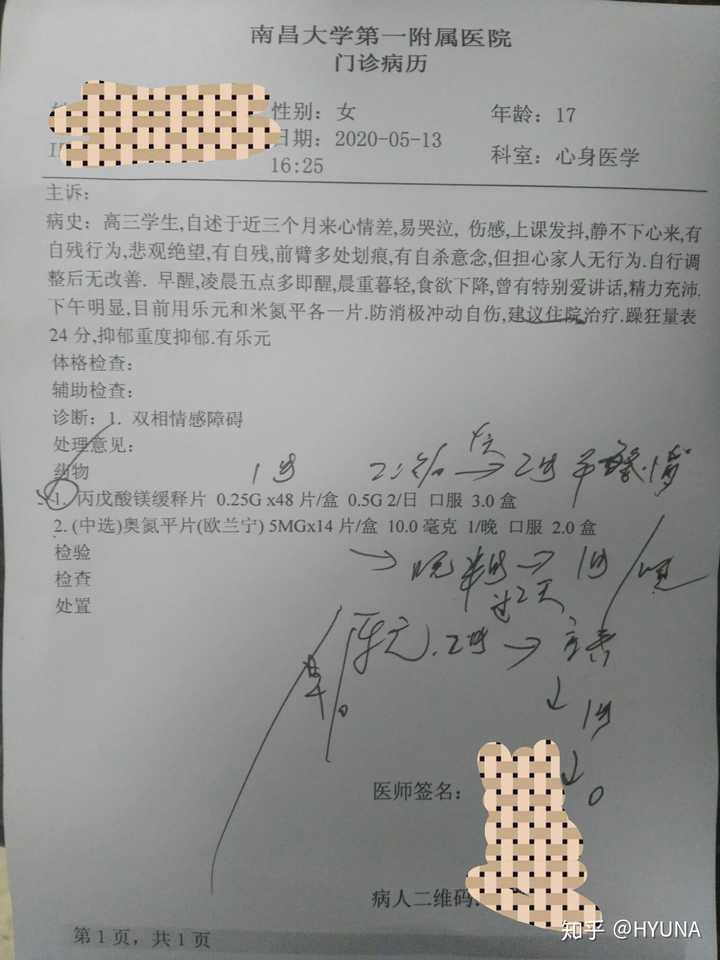 南昌大学第一附属医院
门诊病历
性别：女 年龄：17
日期：2020-05-13
16:25 科室：心身医学
主诉：
病史：高三学生,自述于近三个月来心情差,易哭泣, 伤感,上课发抖,静不下心来,有
自残行为,悲观绝望,有自残,前臂多处划痕,有自杀意念,但担心家人无行为.自行调
整后无改善. 早醒,凌晨五点多即醒,晨重暮轻,食欲下降,曾有特别爱讲话,精力充沛.
下午明显,目前用乐元和米氮平各一片.防消极冲动自伤,建议住院治疗.躁狂量表
24 分,抑郁重度抑郁.有乐元
体格检查：
辅助检查：
诊断：1. 双相情感障碍
处理意见：
药物
1. 丙戊酸镁缓释片 0.25G x48 片/盒 0.5G 2/日 口服 3.0 盒
2. (中选)奥氮平片(欧兰宁) 5MGx14 片/盒 10.0 毫克 1/晚 口服 2.0 盒
检验
检查
处置
过2天
乐元
0
医师签名：
病人二维码:
第 1 页，共 1 页
知乎 @HYUNA